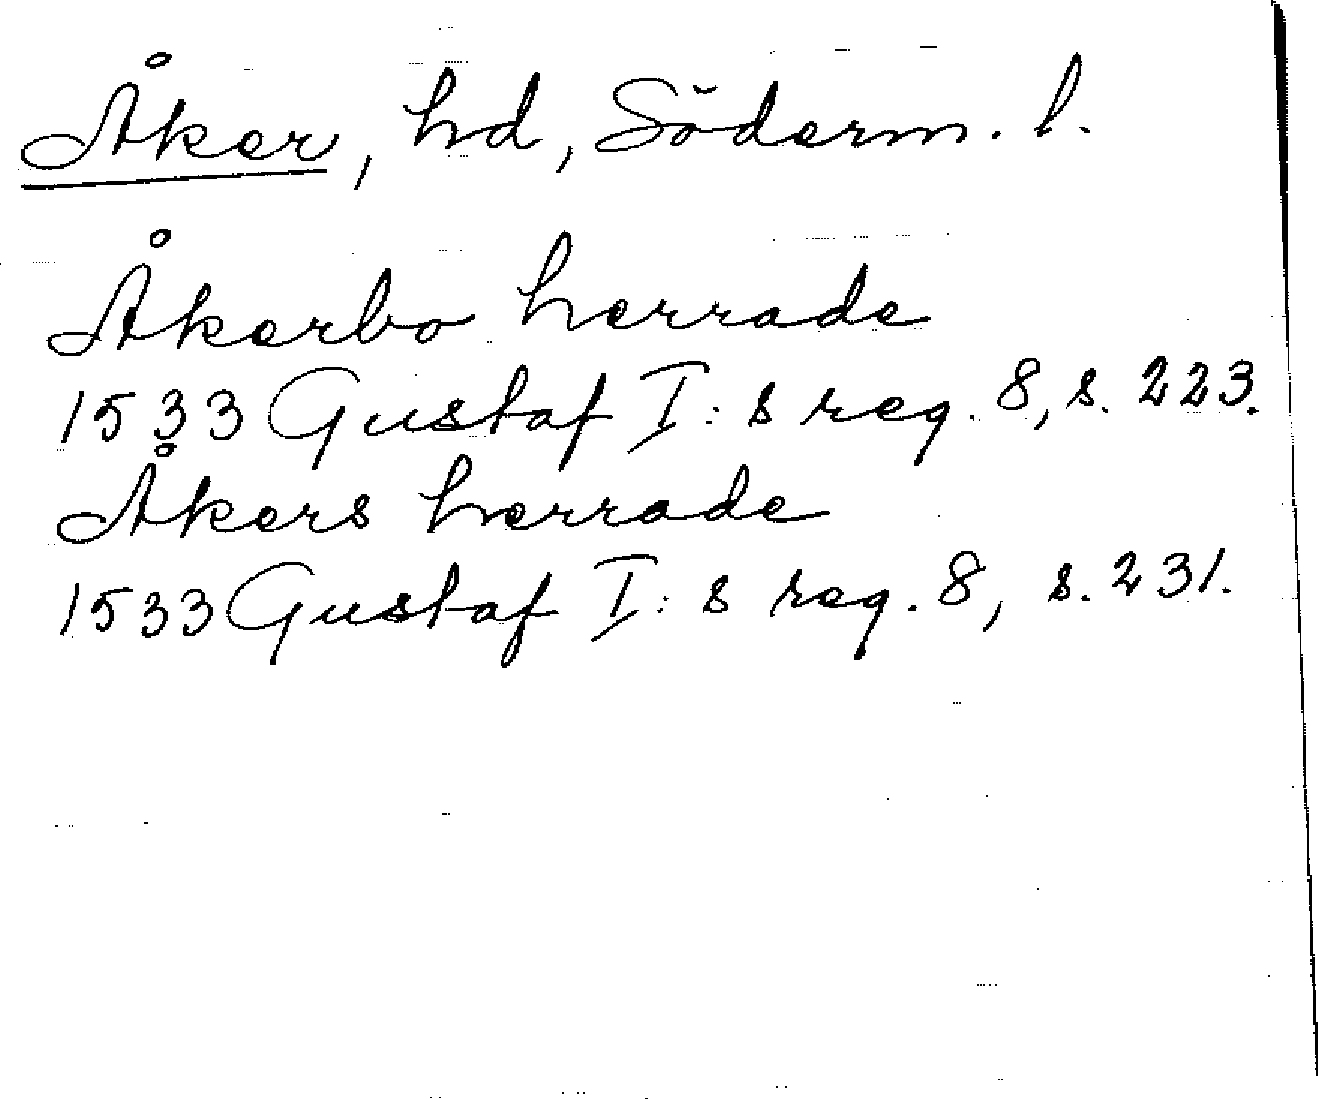 Åker, hd, Söderm. l.
Åkerbo herrade
1533 Gustaf I:s reg. 8, s. 223.
Åkers herrade
1533 Gustaf I:s reg. 8, s. 231.